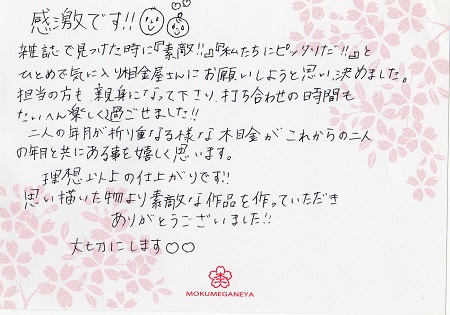 感激です!!
雑誌で見つけた時に『素敵!!』『私たちにピッタリだ!!』と
ひとめで気に入り杢目金屋さんにお願いしようと思い決めました。
担当の方も親身になって下さり、打ち合わせの時間も
たいへん楽しく過ごせました!!
二人の年月が折り重なる様な木目金がこれからの二人
の年月と共にある事を嬉しく思います。
理想以上の仕上がりです!!
思い描いた物より素敵な作品を作っていただき
ありがとうございました!!
大切にします○○
MOKUMEGANEYA